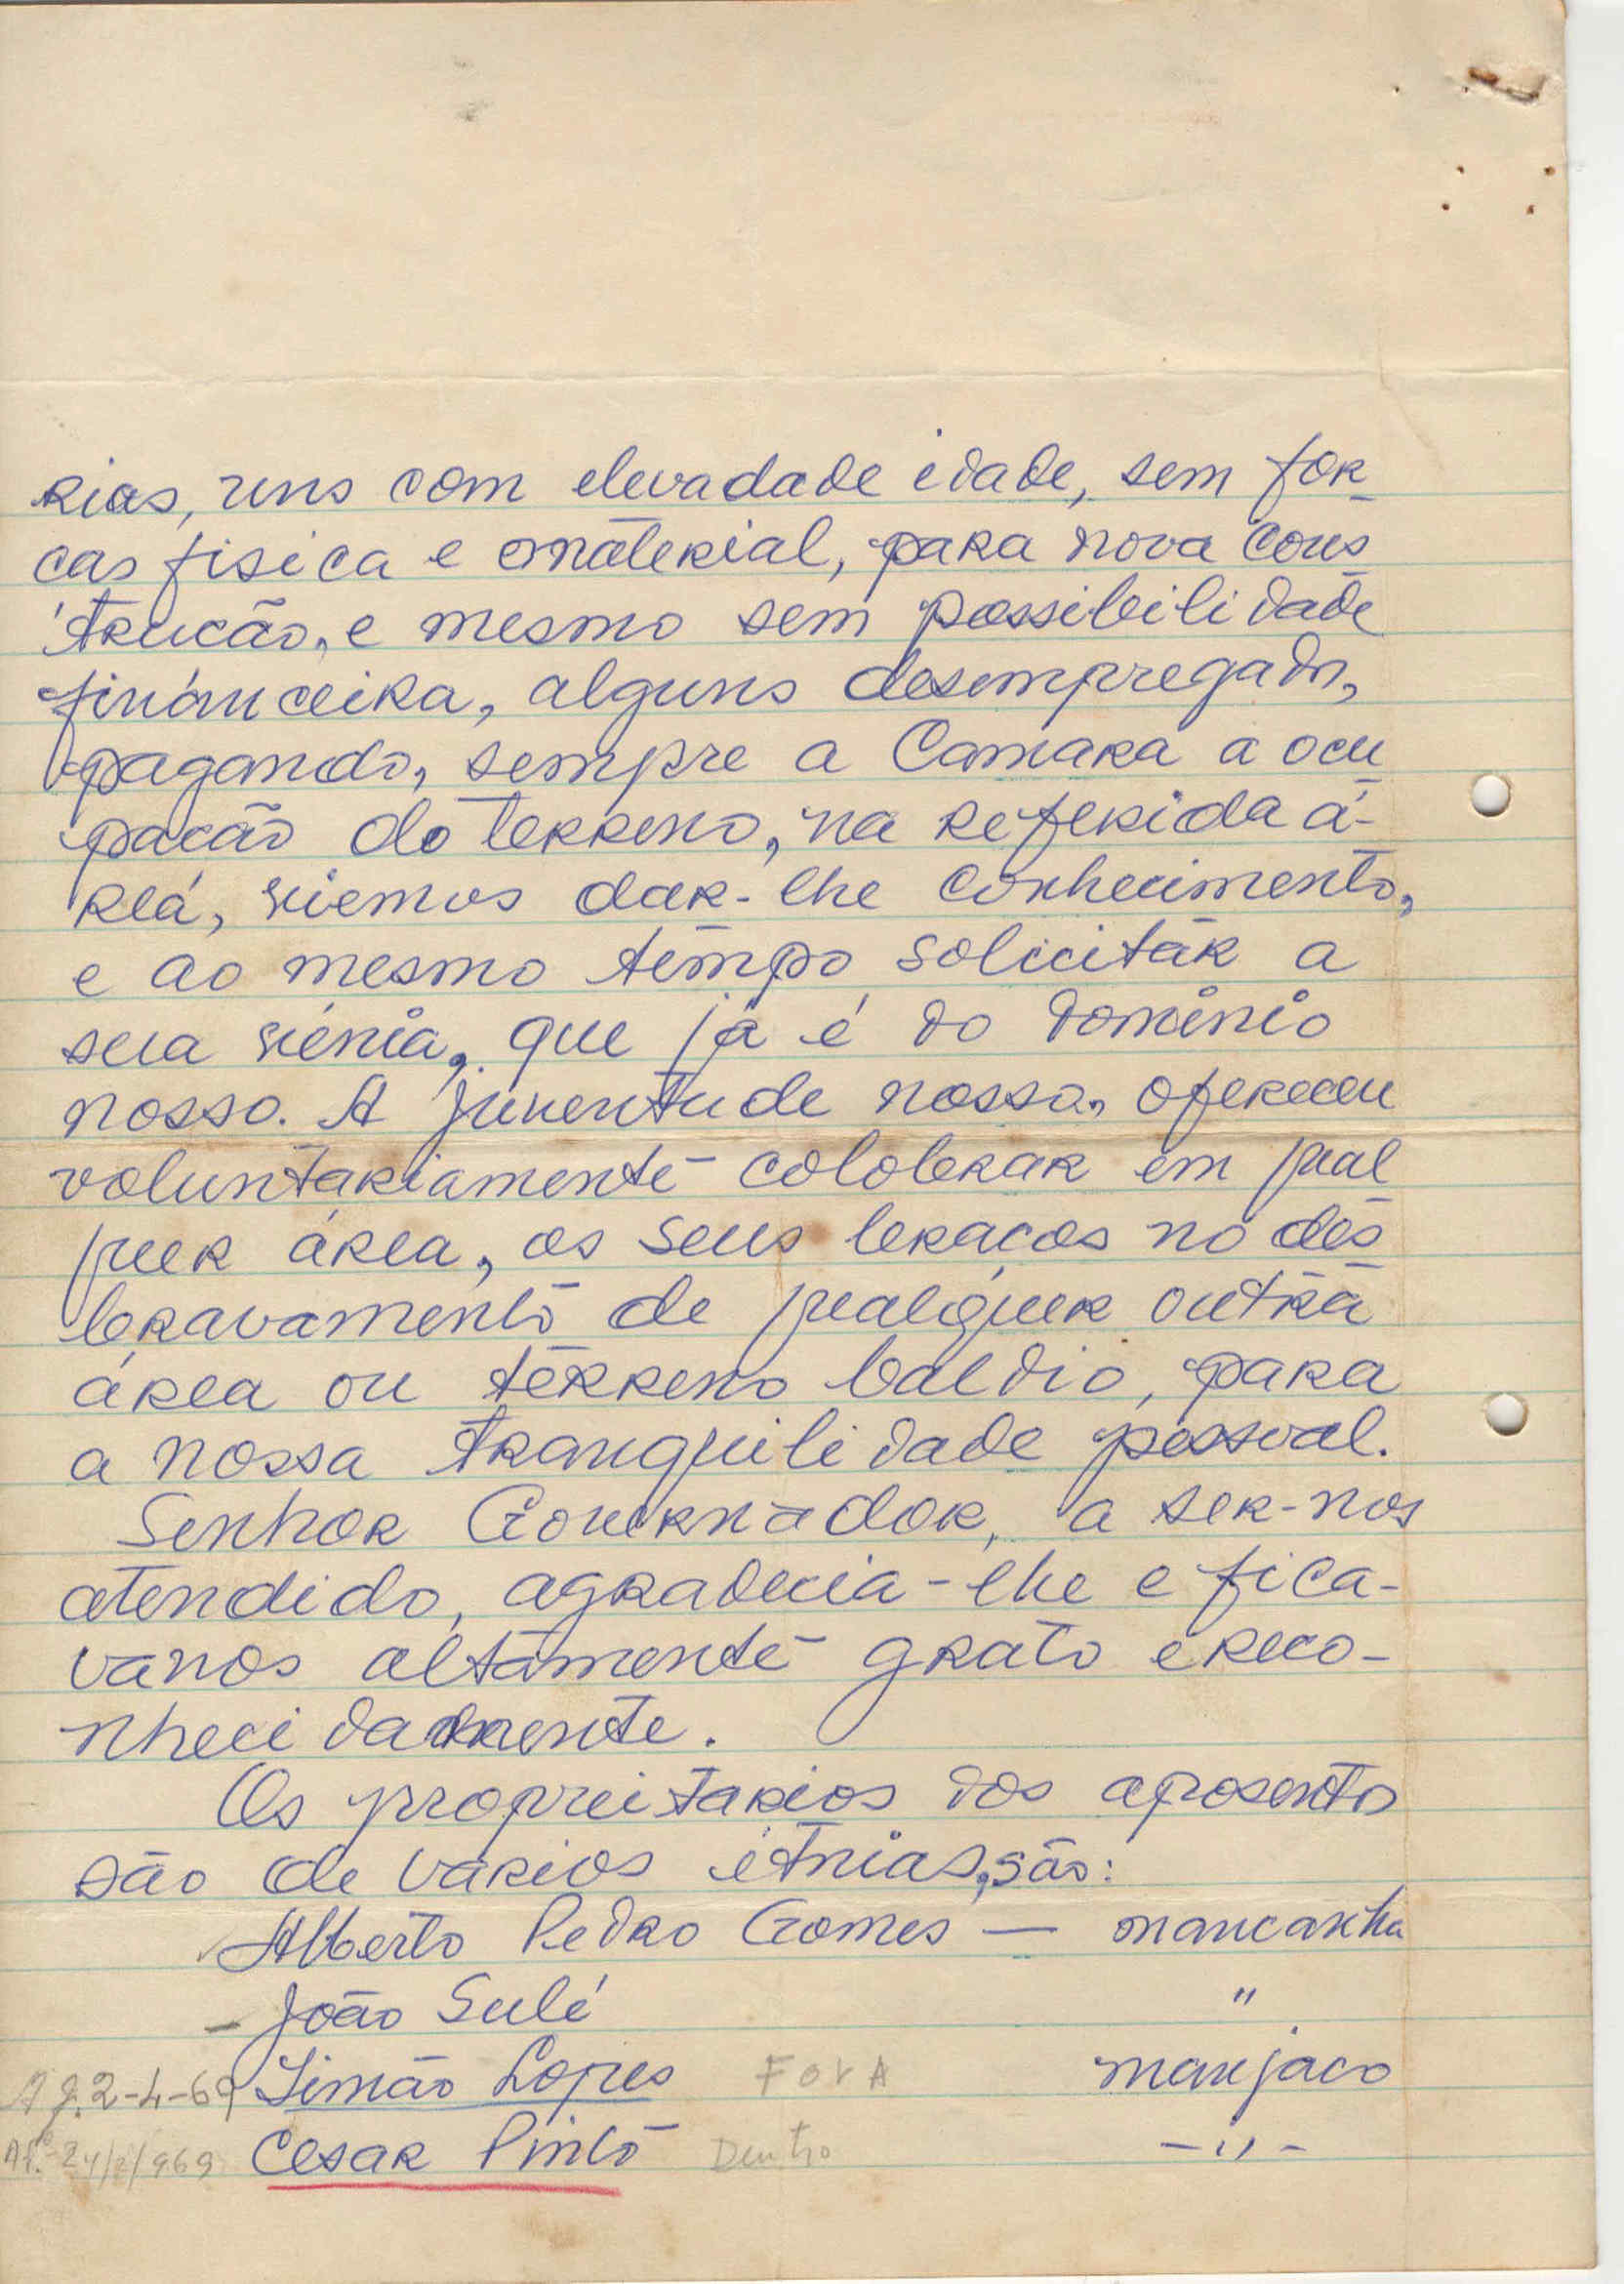 rias, uns com elevadade idade, sem for-
cas fisica e material, para nova cons
trucão, e mesmo sem possibilidade
financeira, alguns desempregados,
pagando, sempre a Camara a ocu
pacão do terreno, na referida á-
reá, viemos dar-lhe conhecimento,
e ao mesmo tempo solicitar a
sua vénia, que já é do dominio
nosso. A juventude nossa, ofereceu
voluntariamente coloberar em qual
quer área, os seus bracos no des
bravamento de qualquer outra
área ou terreno baldio, para
a nossa tranquilidade pessoal.
Senhor Governador, a ser-nos
atendido, agradecia-lhe e fica-
vanos altamente grato e reco-
nhecidamente.
Os proprietarios dos aposentos
são de varios étnias, são:
Alberto Pedro Gomes — mancanha
- João Sulé "
Ag. 2-4-69 Simão Lopes FORA manjaco
24/2/969 Cesar Pinto Dentro -"-